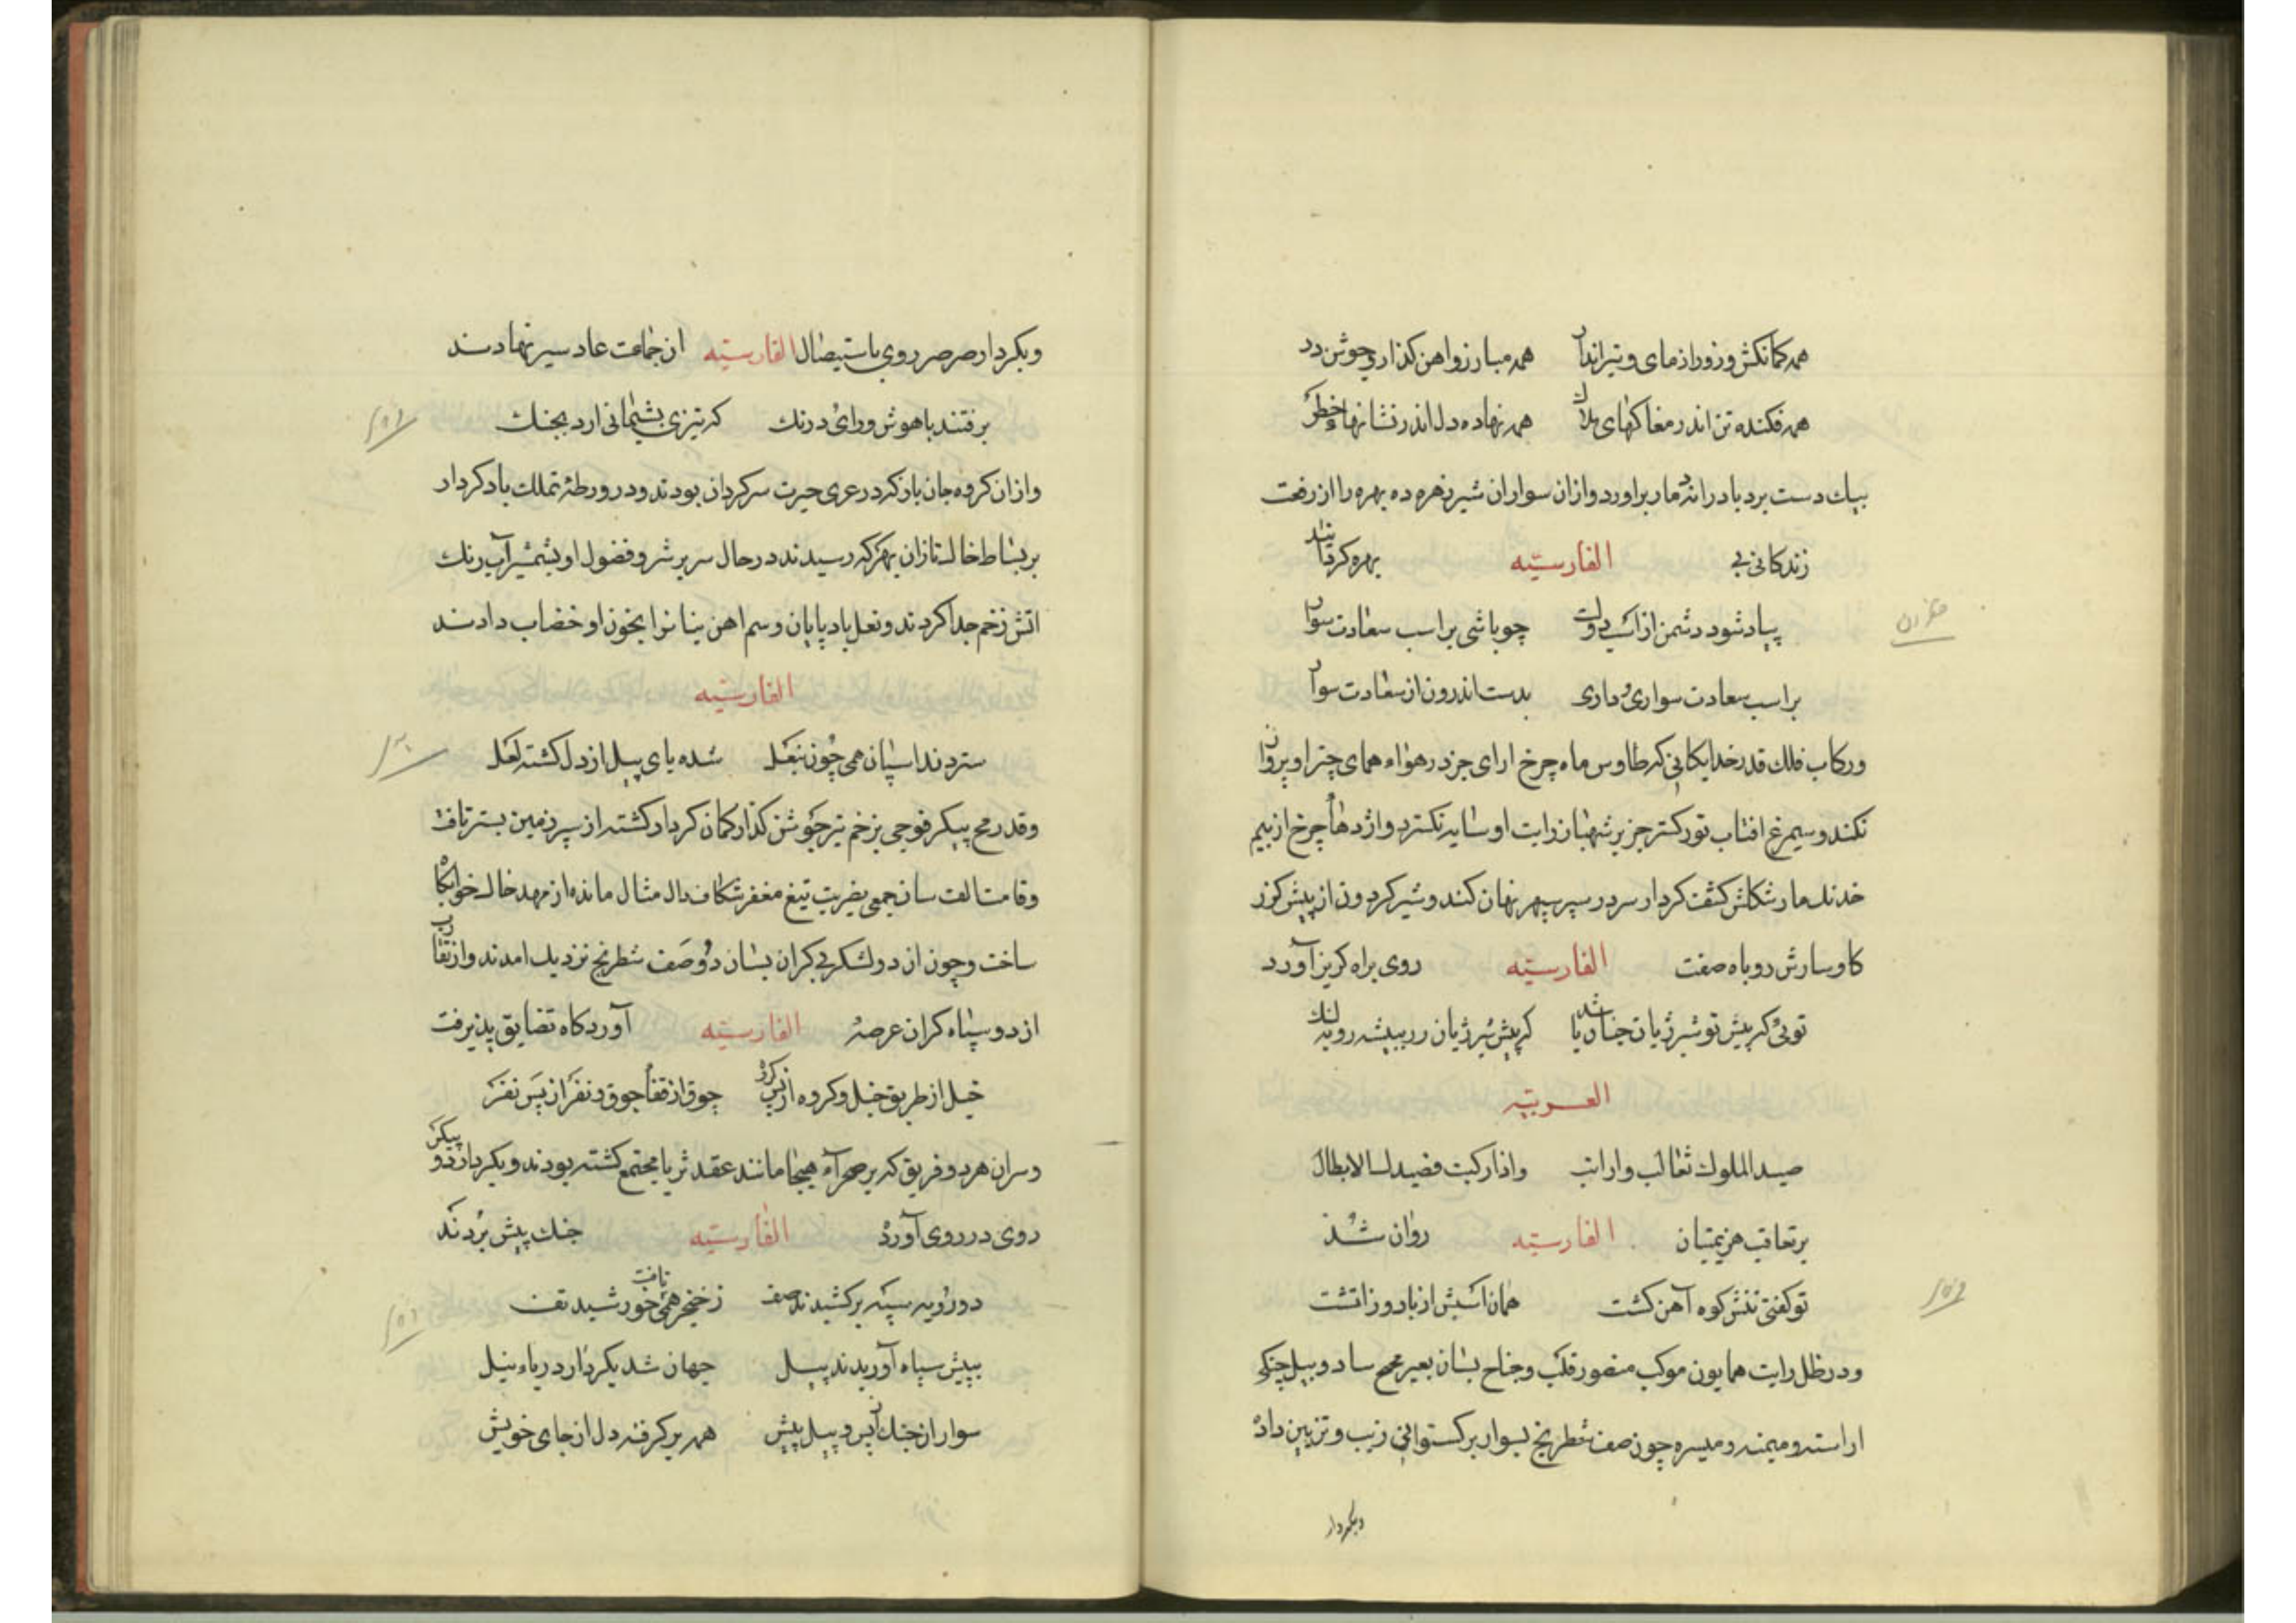 همه کمانکش و زورازمای و تیرانداز همه مبارز و اهن کذار و جوشن در
همه فکنده تن اندر مغاکهای هلاک همه نهاده دل اندر نشانهاء خطر
بیک دست برد باد را اند مار براورد و ازان سواران شیر زهره ده بهره را از رخت
زندکانی بی الفارسیّه بهره کردانید
پیاده شود دشمن از اسب دولت چو باشی بر اسب سعادت سوار
بر اسب سعادت سواری و داری بدست اندرون از سعادت سوار
و رکاب فلک قدر خدایکانی که طاوس ماه چرخ ارای جز در هواء همای چتر او پرواز
نکند و سیمرغ افتاب نور کستر جز بر شهباز رایت او سایه نکسترد و اژدهاء چرخ از بیم
خدنک مار شکلش کشف کردار سر در سپر سپهر نهان کند و شیر کردون از پیش کرز
کاو سارش روباه صفت الفارسیّه روی براه کریز آورد
توئی که پیش تو شیر ژیان چنان باشد که پیش شیر ژیان در بیشه روبه لنک
العربیّه
صید الملوک ثعالب و ارانب و اذا رکبت فصیدک الابطال
بر تعاقب هزیمتیان الفارسیّه روان شد
تو کفتی تنش کوه آهن کشت همان اسبش از باد و ز اتشت
و در ظل رایت همایون موکب منصور قلب و جناح بسان بعیر مح ساد و بیل جنکی
اراسته و میمنه و میسره چون صف شطرنج بسوار برکستوانی زیب و تزیین داده
وبکردار
وبکردار صرصر روی باستیصال الفارسیّه ان جماعت عاد سیر نهادند
برفتند با هوش و رای و درنک که تیزی پشیمانی ارد بجنک
و ازان کروه جان باز که در عری حیرت سرکردان بودند و در ورطهٔ تملک باد کردار
بر بساط خاک تازان بهر که رسیدند در حال سر پر شر و فضول او بشمشیر آب رنک
اتش زخم جدا کردند و نعل باد پایان و سم اهن ینانرا بخون او خضاب دادند
الفارسیّه
ستردند اسپان همی خون بنعل شده پای پیل از دل کشته لعل
و قد رمح پیکر فوجی بزخم تیر جوشن کذار کمان کردار کشته از سر زمین بستر یافت
و قامت الف سان جمعی بضربت تیغ مغفر شکاف دال مثال مانده از مهد خاک خوابکاه
ساخت و چون از دو لشکر بی کران بسان دو صف شطرنج نزدیک امدند و از تقارب
از دو سپاه کران عرصهٔ الفارسیّه آوردکاه تضایق پذیرفت
خیل از طریق خیل و کروه از پس کروه جوق از قفاء جوق و نفر از پس نفر
و سران هر دو فریق که بر صحراء هیجا مانند عقد ثریا مجتمع کشته بودند و بکردار دو پیکر
روی در روی آورده الفارسیّه جنک پیش بردند
دو رویه سپه برکشیدند صف ز خنجر همی خورشید تف یافت
بپیش سپاه آوریدند پیل جهان شد بکردار دریاء نیل
سوار از جنک پس و پیل پیش همه برکرفته دل از جای خویش